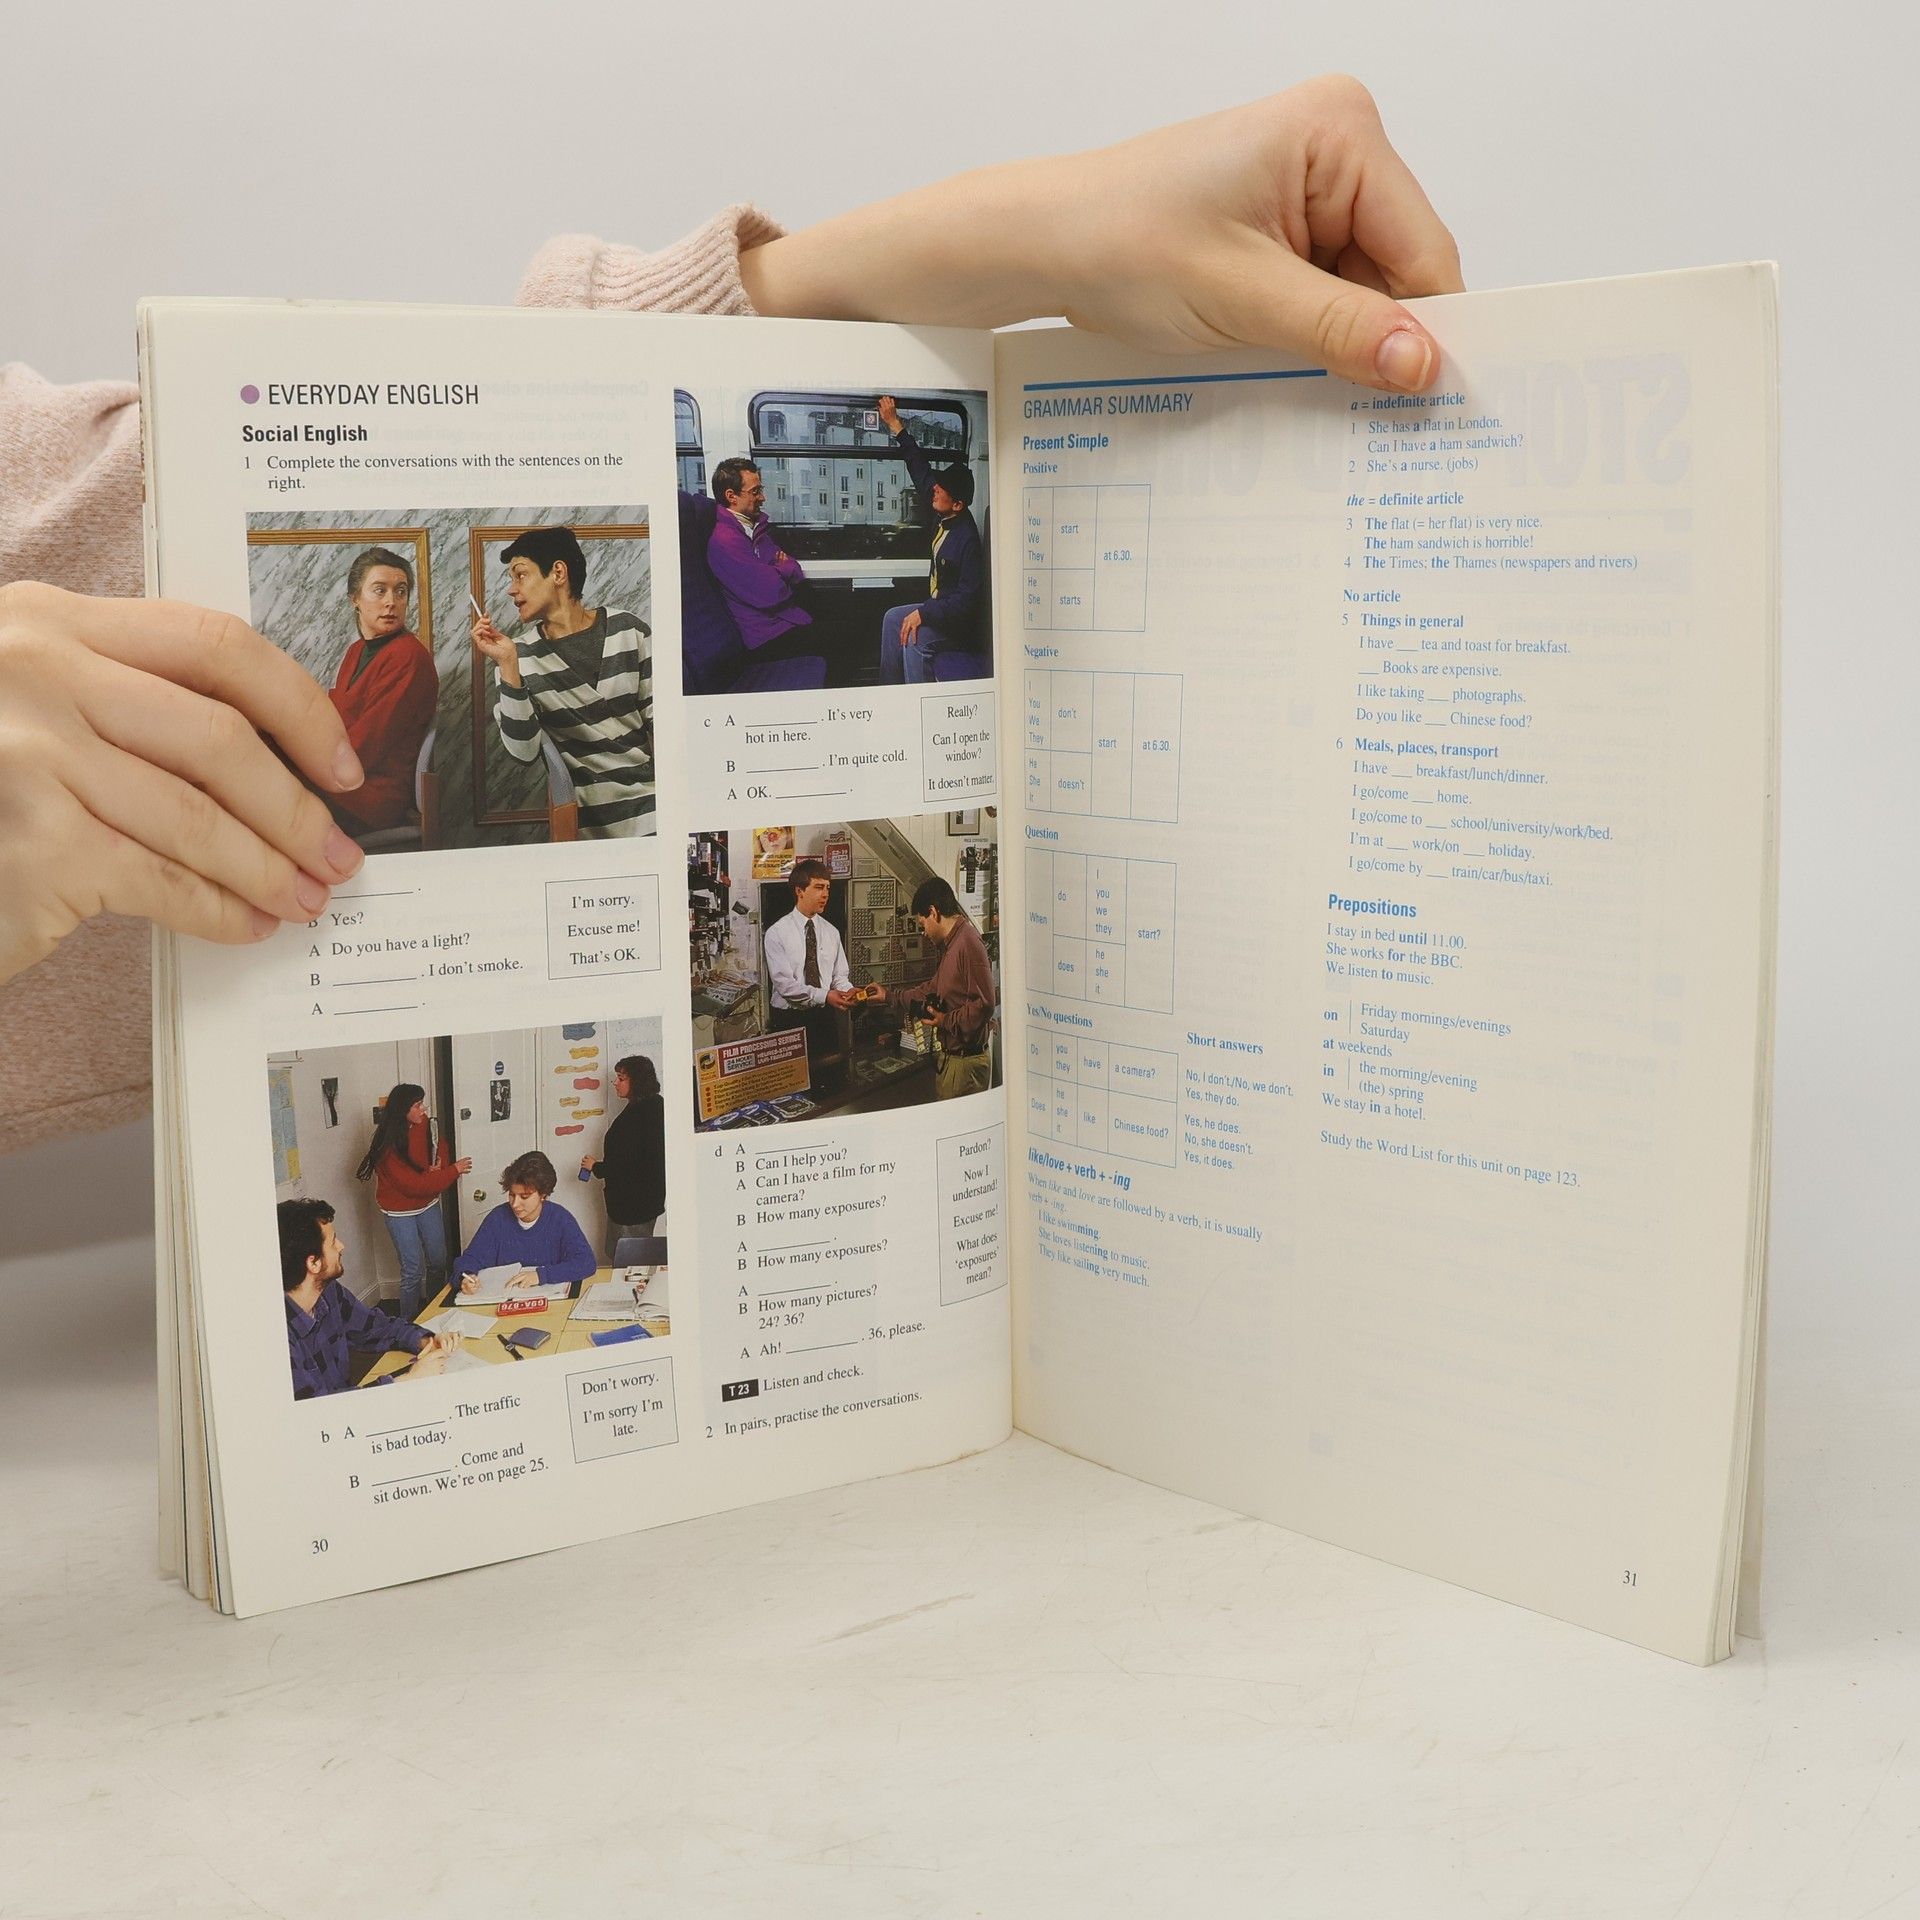 EVERYDAY ENGLISH
Social English
1 Complete the conversations with the sentences on the
right.
________ .
B Yes?
A Do you have a light?
B ________ . I don't smoke.
A ________ .
I'm sorry.
Excuse me!
That's OK.
b A ________ . The traffic
is bad today.
B ________ . Come and
sit down. We're on page 25.
Don't worry.
I'm sorry I'm
late.
30
c A ________ . It's very
hot in here.
B ________ . I'm quite cold.
A OK. ________ .
Really?
Can I open the
window?
It doesn't matter.
FILM PROCESSING SERVICE
24 HOURS
SERVICE
d A ________ .
B Can I help you?
A Can I have a film for my
camera?
B How many exposures?
A ________ .
B How many exposures?
A ________ .
B How many pictures?
24? 36?
A Ah! ________ . 36, please.
Pardon?
Now I
understand!
Excuse me!
What does
'exposures'
mean?
T 23 Listen and check.
2 In pairs, practise the conversations.
GRAMMAR SUMMARY
Present Simple
Positive
I
You
We
They
start
He
She
It
starts
at 6.30.
Negative
I
You
We
They
don't
He
She
It
doesn't
start
at 6.30.
Question
When
do
I
you
we
they
does
he
she
it
start?
Yes/No questions
Do
you
they
have
a camera?
Does
he
she
it
like
Chinese food?
Short answers
No, I don't./No, we don't.
Yes, they do.
Yes, he does.
No, she doesn't.
Yes, it does.
like/love + verb + -ing
When like and love are followed by a verb, it is usually
verb + -ing.
I like swimming.
She loves listening to music.
They like sailing very much.
a = indefinite article
1 She has a flat in London.
Can I have a ham sandwich?
2 She's a nurse. (jobs)
the = definite article
3 The flat (= her flat) is very nice.
The ham sandwich is horrible!
4 The Times; the Thames (newspapers and rivers)
No article
5 Things in general
I have ___ tea and toast for breakfast.
___ Books are expensive.
I like taking ___ photographs.
Do you like ___ Chinese food?
6 Meals, places, transport
I have ___ breakfast/lunch/dinner.
I go/come ___ home.
I go/come to ___ school/university/work/bed.
I'm at ___ work/on ___ holiday.
I go/come by ___ train/car/bus/taxi.
Prepositions
I stay in bed until 11.00.
She works for the BBC.
We listen to music.
on Friday mornings/evenings
Saturday
at weekends
in the morning/evening
(the) spring
We stay in a hotel.
Study the Word List for this unit on page 123.
31